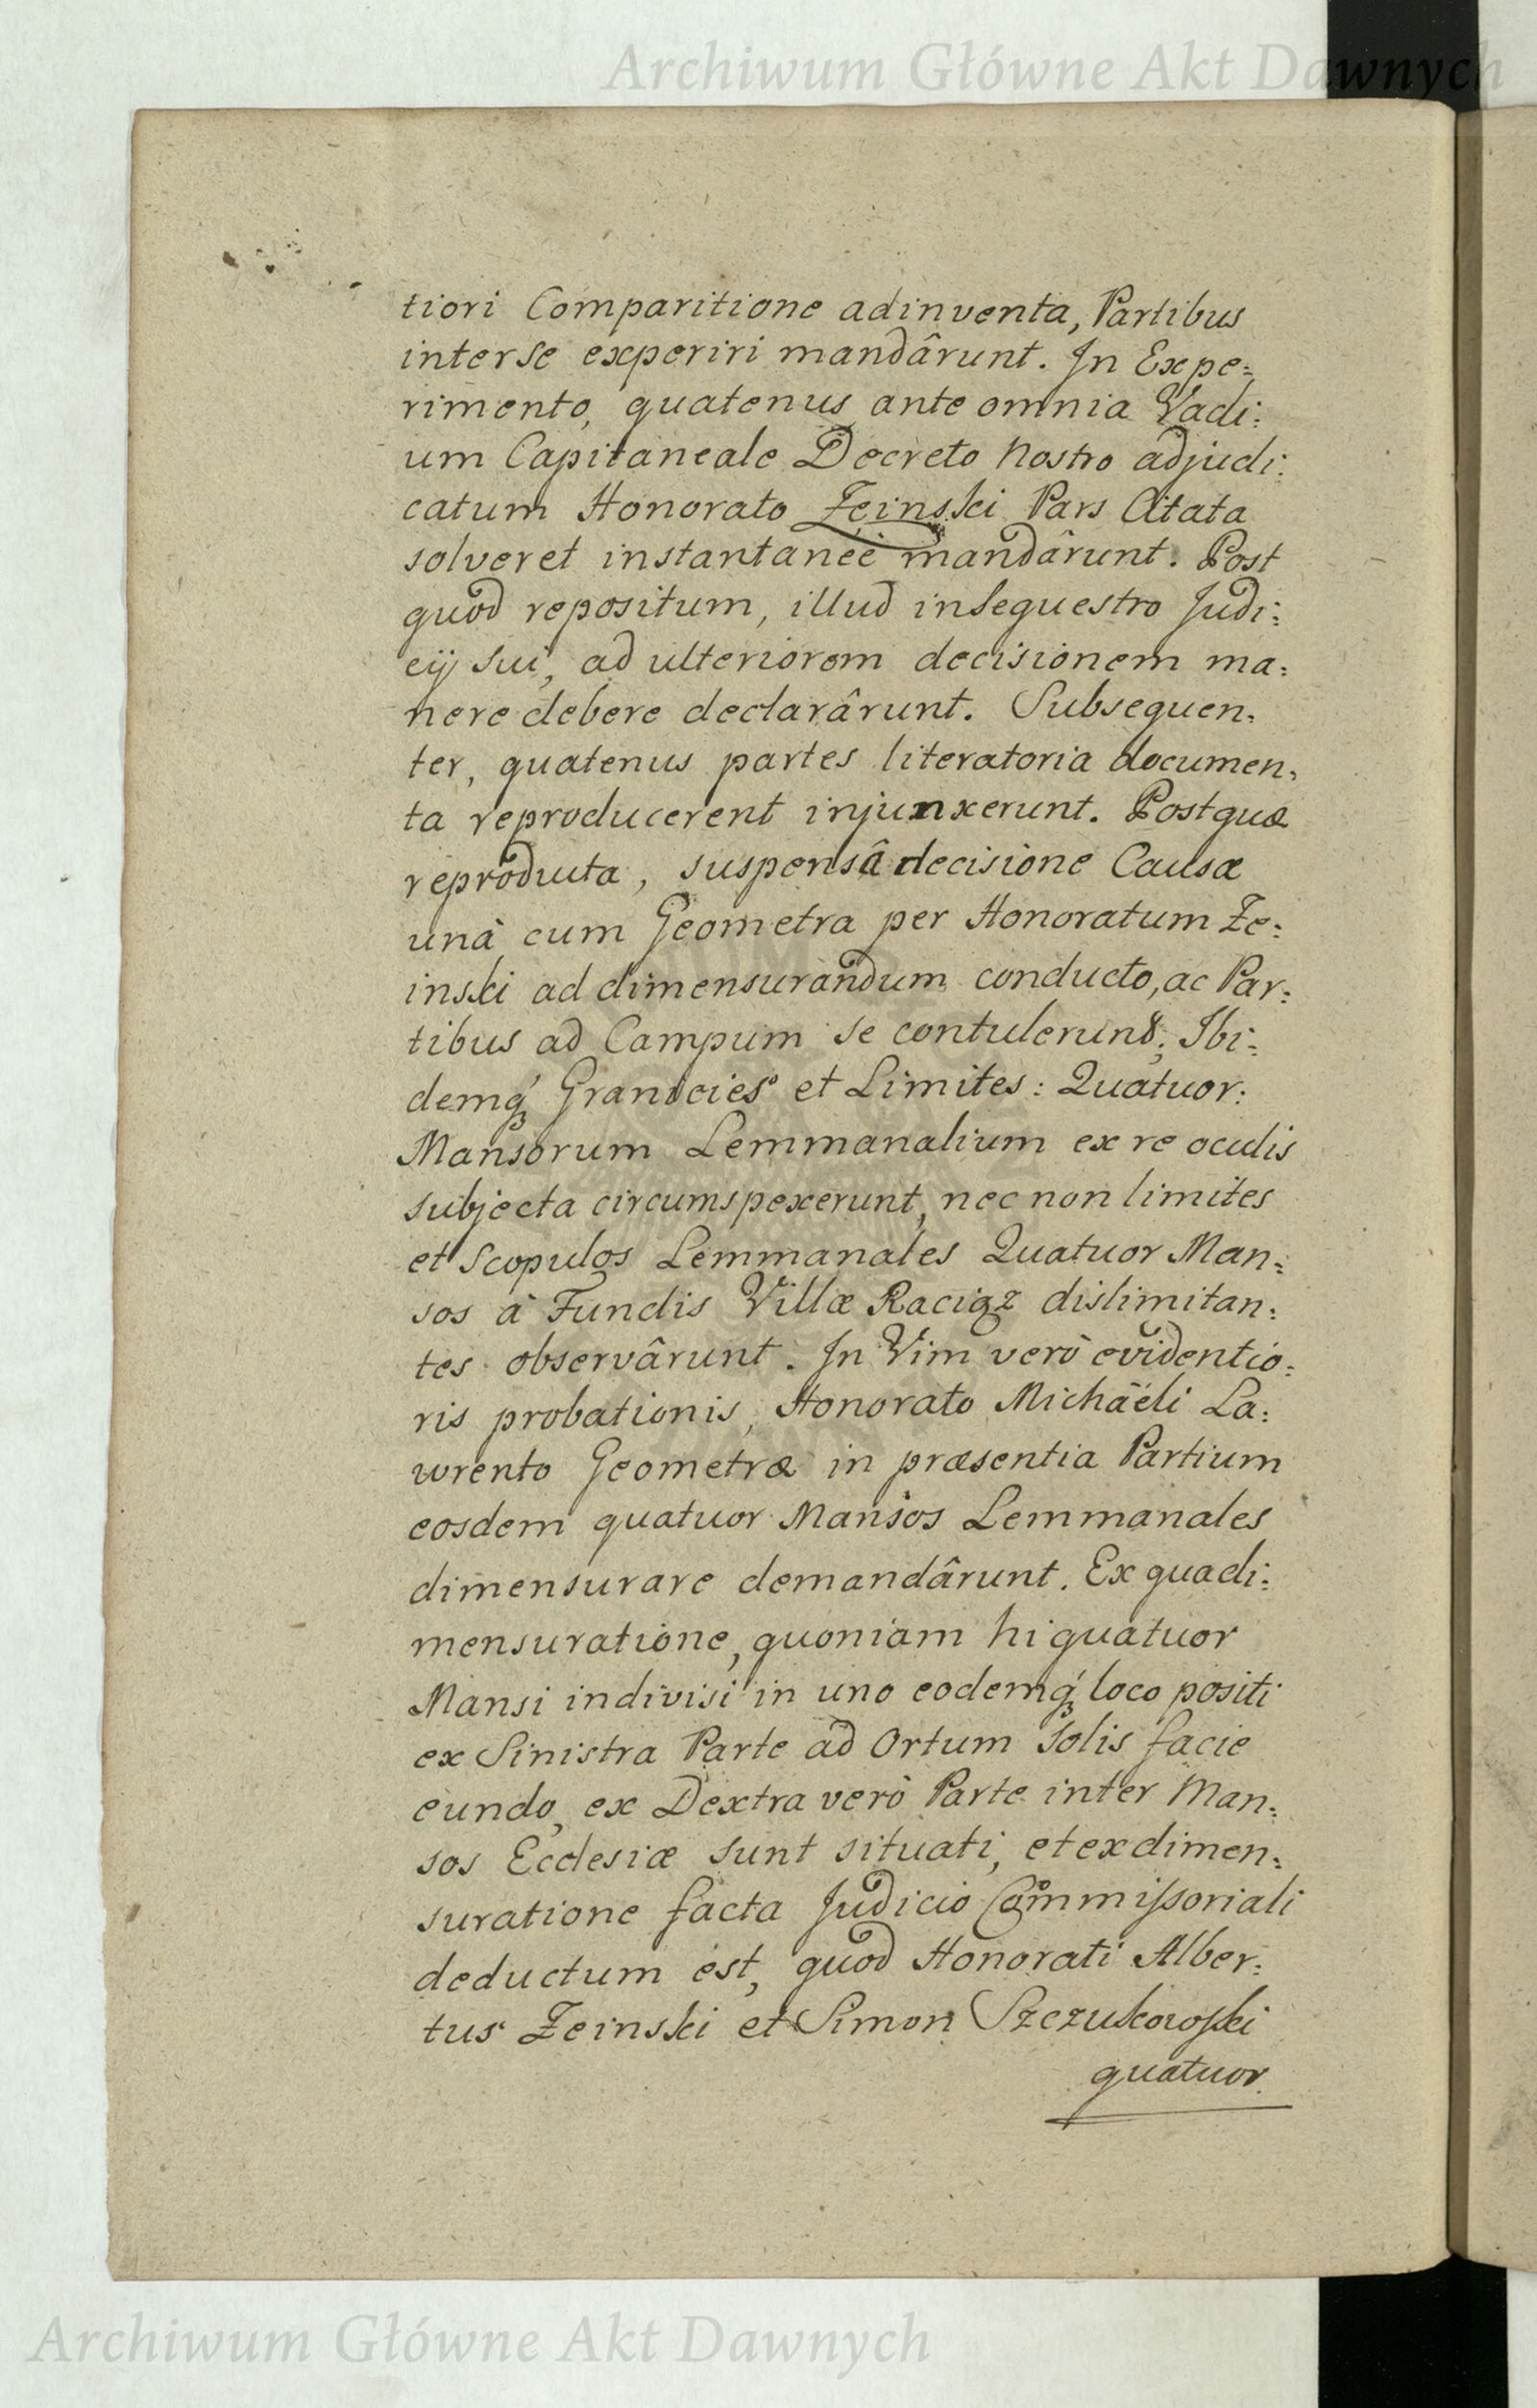 Archiwum Główne Akt Dawnych
tiori Comparitione adinventa, Partibus
inter se experiri mandârunt. In Expe=
rimento, quatenus ante omnia Vadi=
um Capitaneale Decreto Nostro adjudi=
catum Honorato Zeinski Pars Citata
solveret instantaneè mandârunt. Post
quod repositum, illud in sequestro Judi=
cij sui, ad ulteriorem decisionem ma=
nere debere declarârunt. Subsequen=
ter, quatenus partes literatoria documen=
ta reproducerent injunxerunt. Post quæ
reproducta, suspensâ decisione Causæ
unà cum Geometra per Honoratum Ze=
inski ad dimensurandum conducto, ac Par=
tibus ad Campum se contulerunt; Ibi=
demq́ Granicies et Limites: Quatuor:
Mansorum Lemmanalium ex re oculis
subjecta circumspexerunt, nec non limites
et Scopulos Lemmanales Quatuor Man=
sos à Fundis Villæ Raciąz dislimitan=
tes observârunt. In Vim verò evidentio=
ris probationis, Honorato Michaëli La=
wrento Geometræ in præsentia Partium
eosdem quatuor Mansos Lemmanales
dimensurare demandârunt. Ex qua di=
mensuratione, quoniam hi quatuor
Mansi indivisi in uno eodemq́ loco positi
ex Sinistra Parte ad Ortum Solis facie
eundo, ex Dextra verò Parte inter Man=
sos Ecclesiæ sunt situati, et ex dimen=
suratione facta Judicio Commissoriali
deductum est, quod Honorati Alber=
tus Zeinski et Simon Szczukowski
quatuor
Archiwum Główne Akt Dawnych